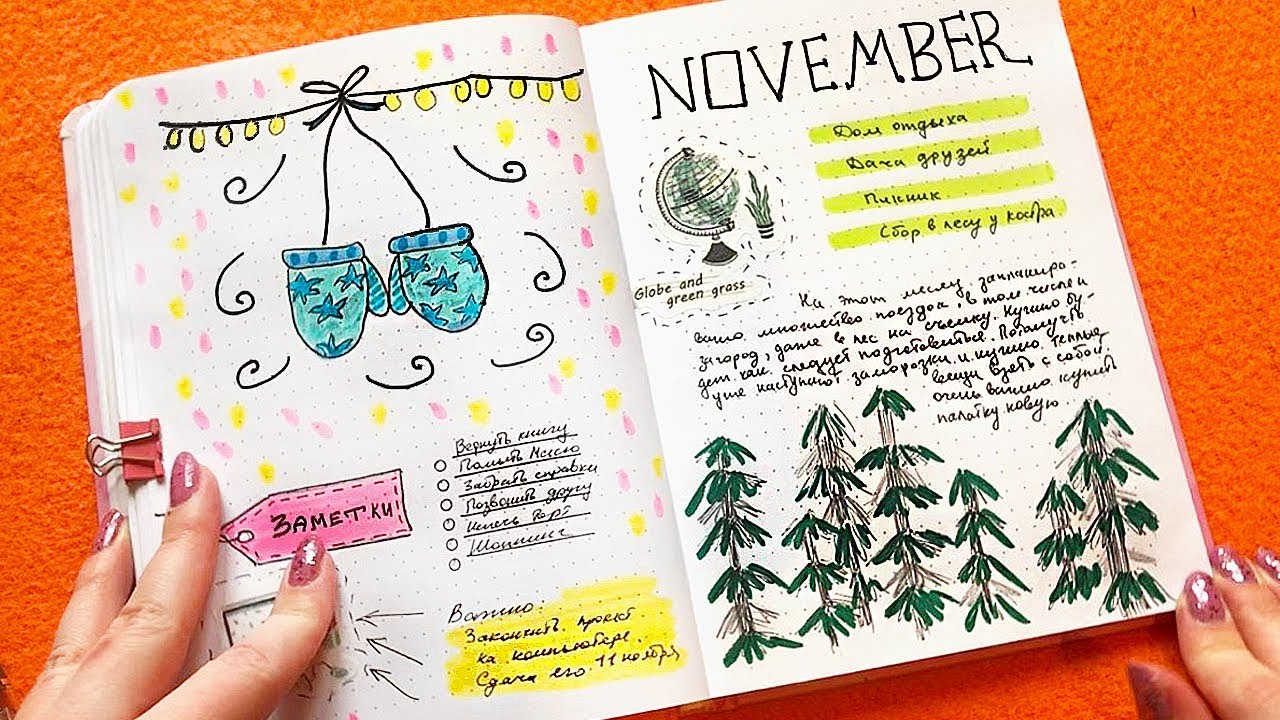 ЗАМЕТКИ
Вернуть книгу
Помыть Масю
Забрать справки
Позвонить другу
Испечь торт
Шоппинг
Важно:
Закончить проект
на компьютере.
Сдача его 11 ноября
NOVEMBER
Дом отдыха
Дача друзей
Пикник
Сбор в лесу у костра.
Globe and
green grass
На этот месяц запланиро-
вано множество поездок, в том числе и
загород, даже в лес на съемку. Нужно бу-
дет как следует подготовиться. Потому что
уже наступают заморозки и нужно теплые
вещи взять с собой.
очень важно купить
палатку новую.